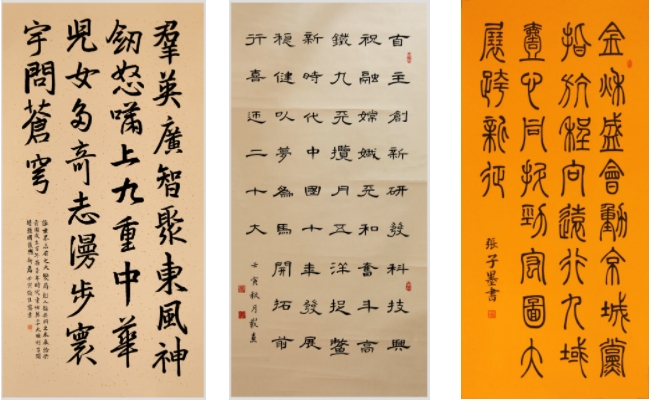 羣英廣智聚東風神
釼怒嘯上九重中華
兒女多奇志漫步寰
宇問蒼穹
自主創新研發科技興
祝融嫦娥天和奮斗高
鐵九天攬月五洋捉鱉
新時代中國十年發展
穩健以夢為馬開拓前
行喜迎二十大
壬寅秋月
金秋盛會動京城黨
指航程向遠行九域
壹心同執勁宏圖大
展跨新征
張子墨書